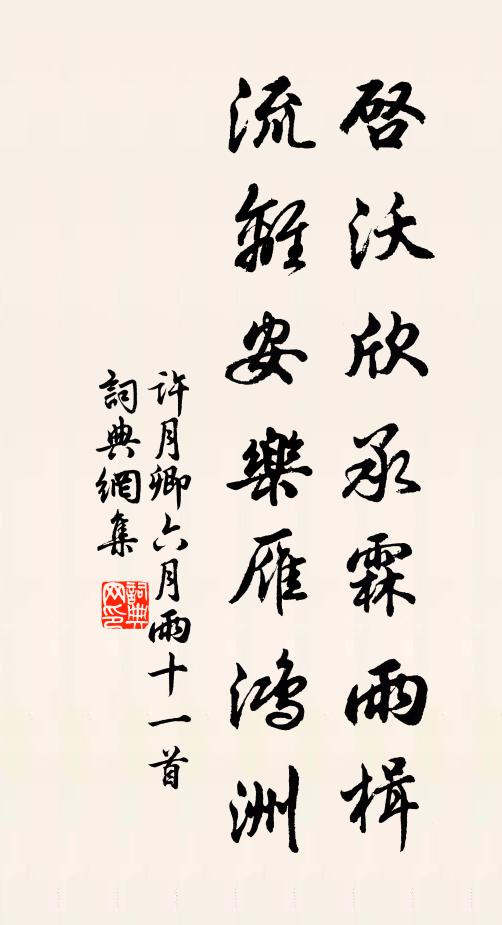 啓沃欣承霖雨楫
流離安樂雁鴻洲
許月卿六月雨十一首
詞典網集
詞典网印